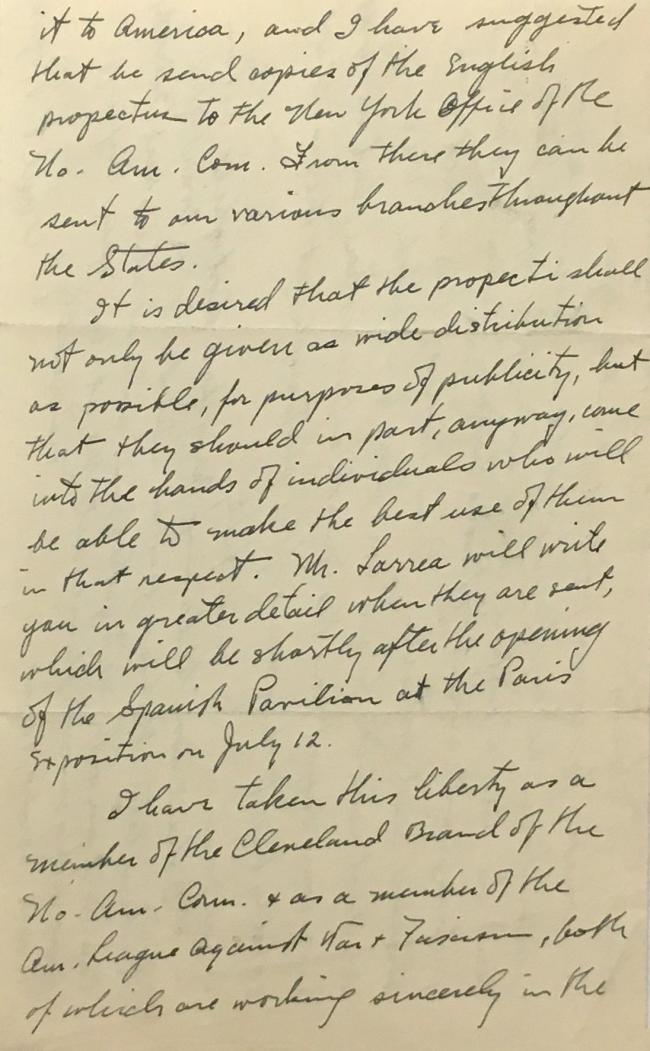 it to America, and I have suggested
that he send copies of the English
propectus to the New York Office of the
No. Am. Com. From there they can be
sent to our various branches throughout
the States.
It is desired that the propecti shall
not only be given as wide distribution
as possible, for purposes of publicity, but
that they should in part, anyway, come
into the hands of individuals who will
be able to make the best use of them
in that respect. Mr. Larrea will write
you in greater detail when they are sent,
which will be shortly after the opening
of the Spanish Pavilion at the Paris
Exposition on July 12.
I have taken this liberty as a
member of the Cleveland Branch of the
No. Am. Com. & as a member of the
Am. League Against War & Fascism, both
of which are working sincerely in the